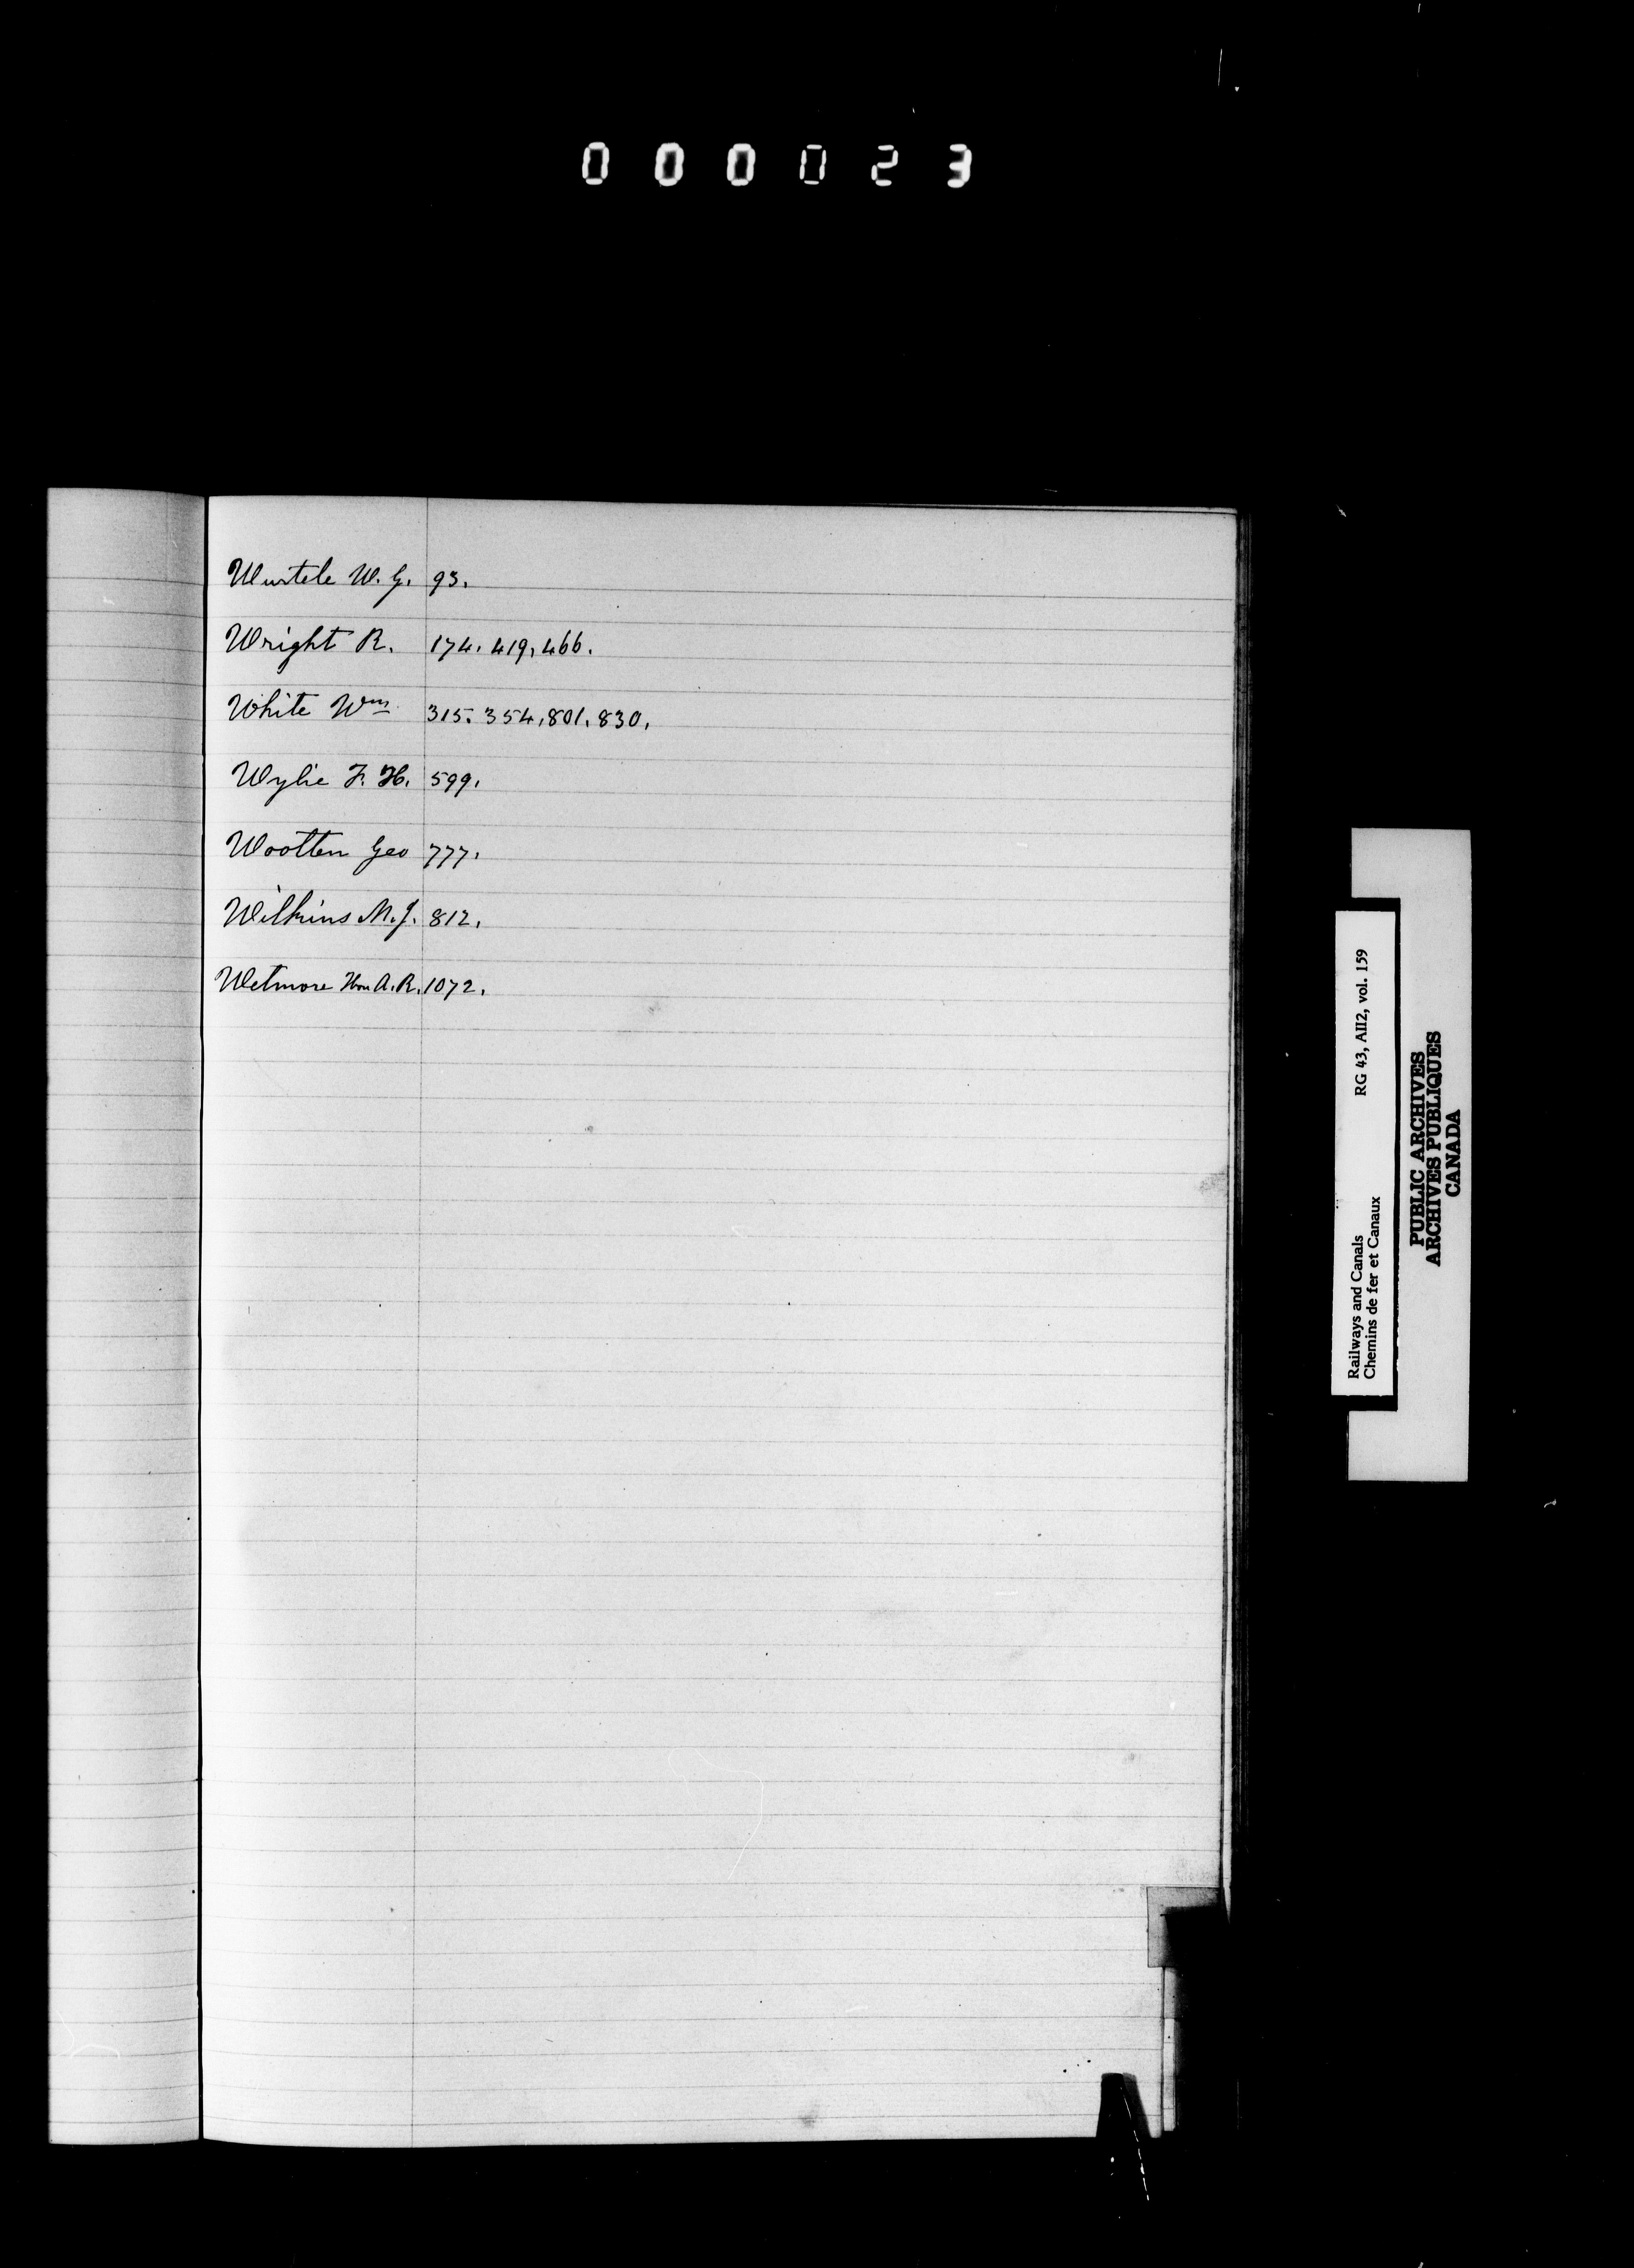 000023
Wurtele W. G. 93.
Wright R. 174. 419, 466.
White Wm 315. 354, 801, 830,
Wylie F. H. 599.
Wootten Geo 777.
Wilkins M. J. 812.
Wetmore Hon A. R. 1072.
Railways and Canals RG 43, AII2, vol. 159
Chemins de fer et Canaux
PUBLIC ARCHIVES
ARCHIVES PUBLIQUES
CANADA